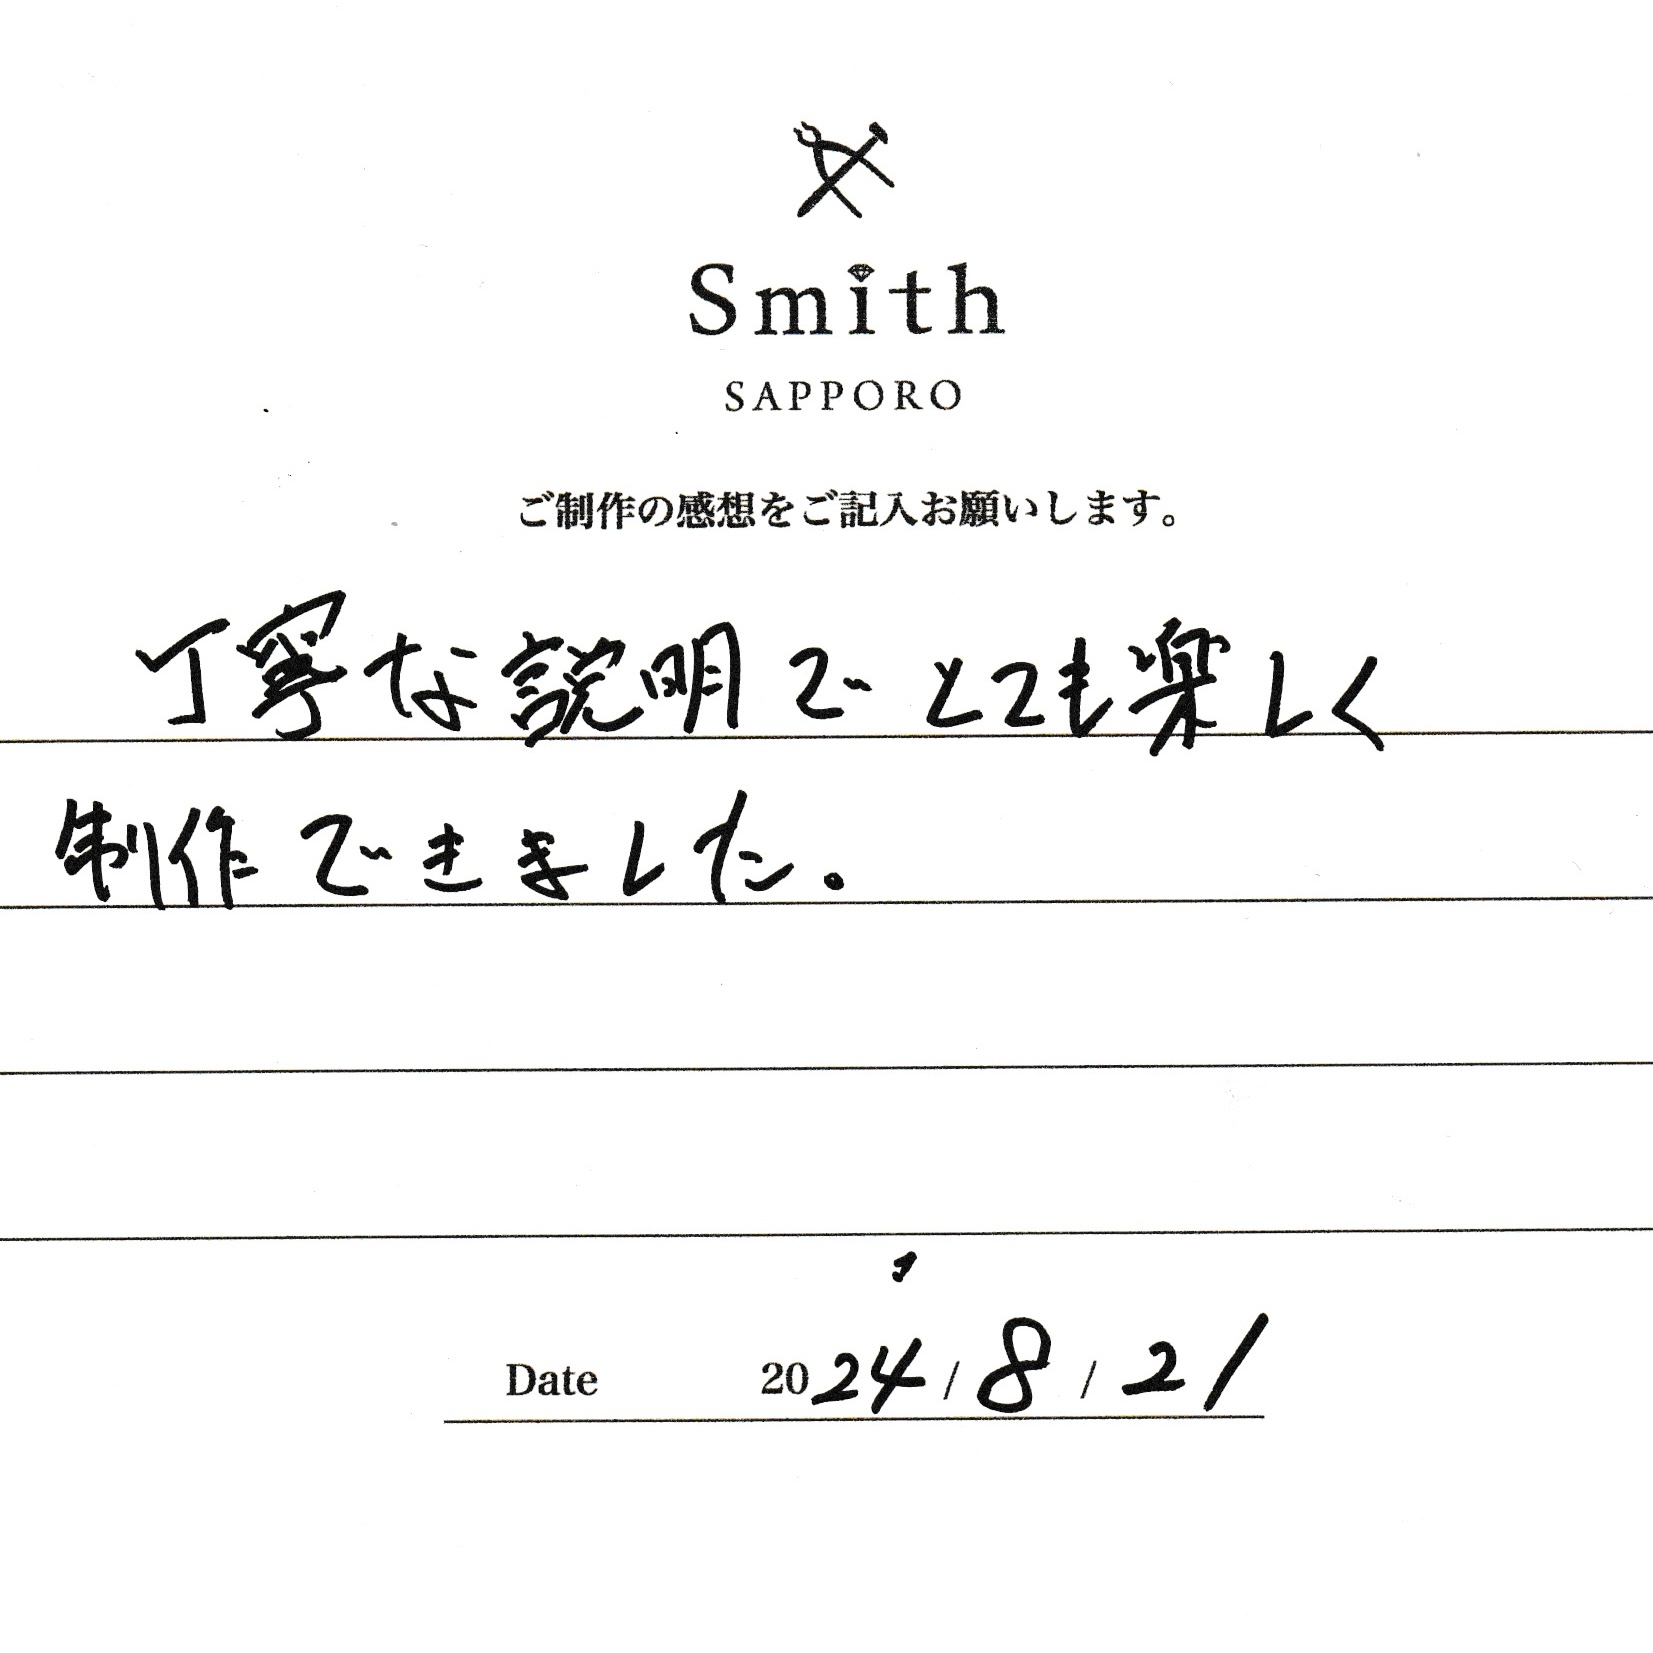 Smith
SAPPORO
ご制作の感想をご記入お願いします。
丁寧な説明でとても楽しく
制作できました。
Date 2024/8/21